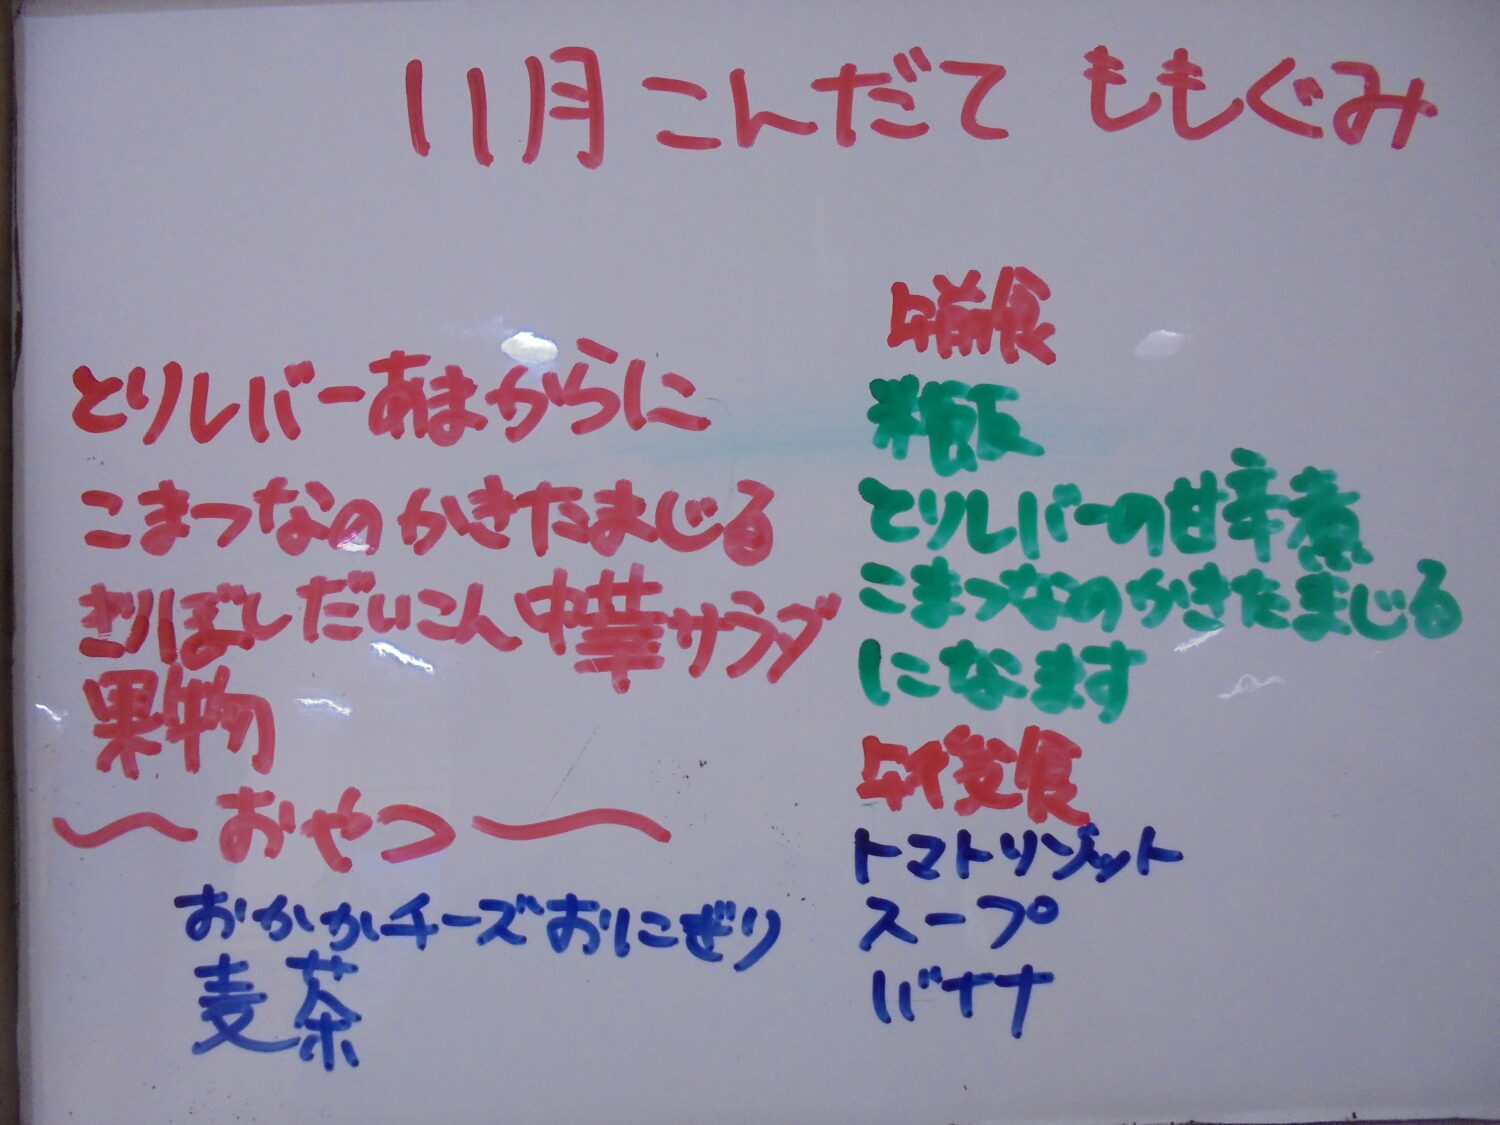 11月 こんだて ももぐみ
とりレバーあまからに
こまつなのかきたまじる
きりぼしだいこん中華サラダ
果物
～おやつ～
おかかチーズおにぎり
麦茶
午前食
米飯
とりレバーの甘辛煮
こまつなのかきたまじる
になます
午後食
トマトリゾット
スープ
バナナ